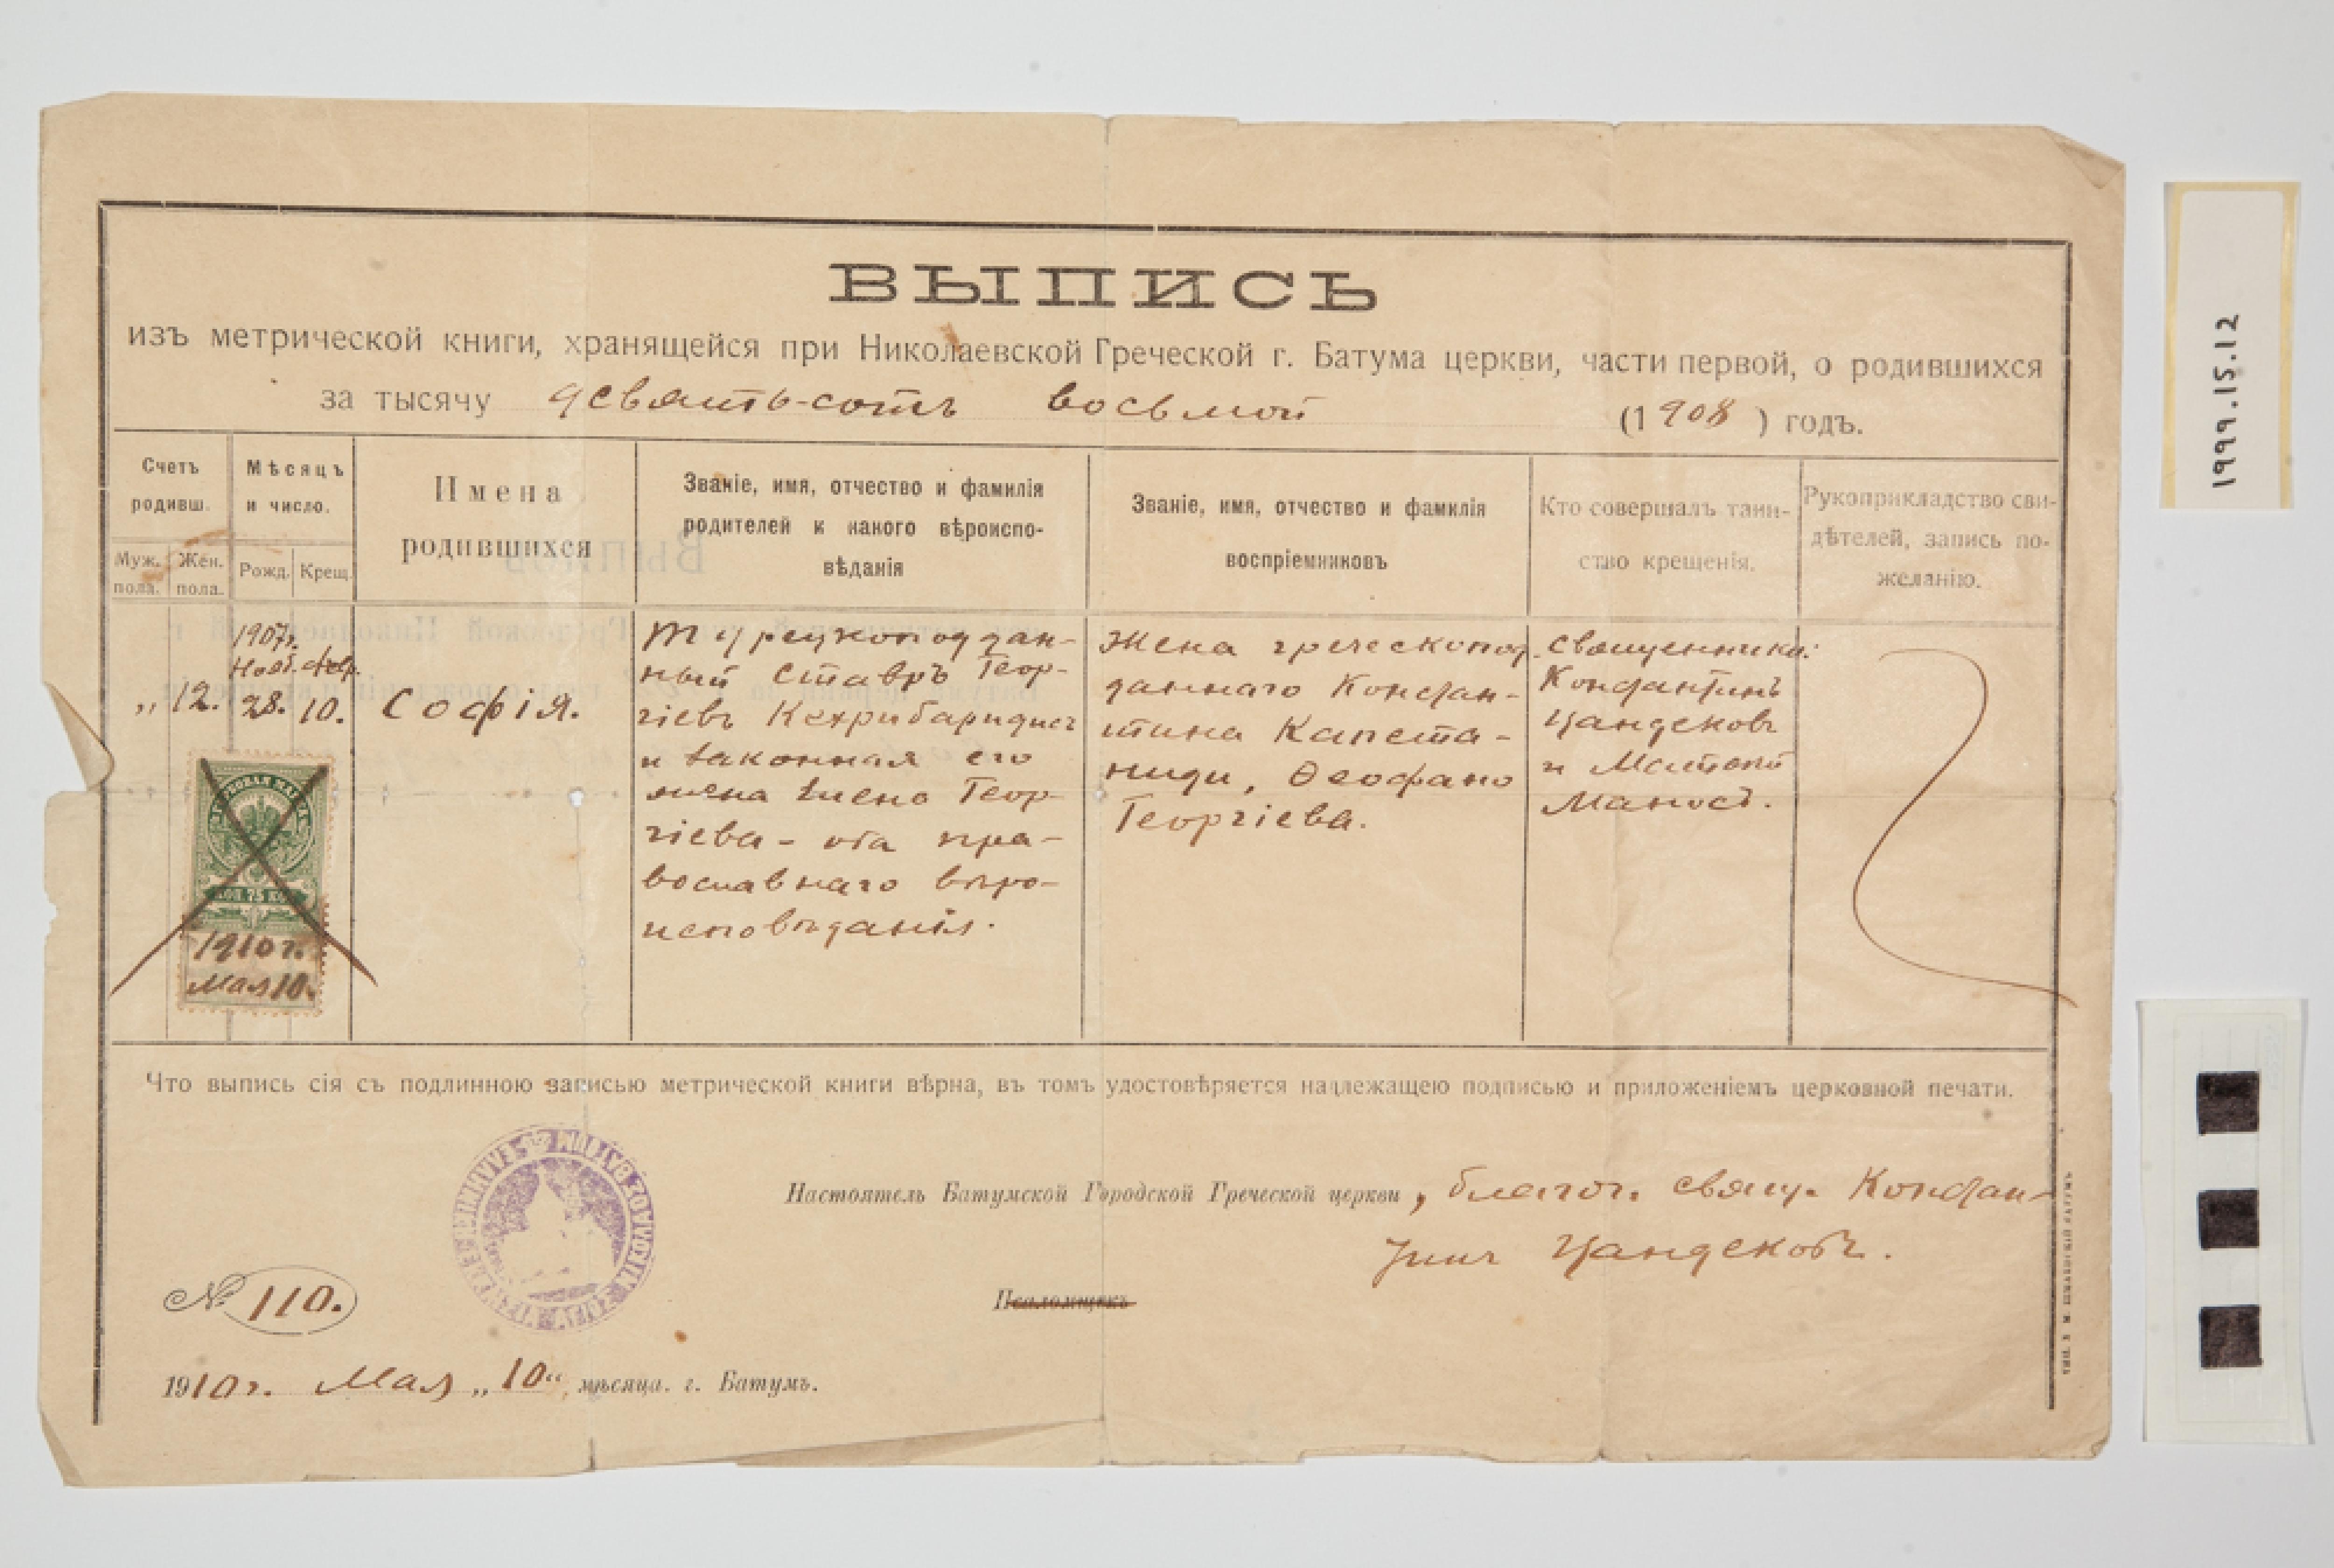 ВЫПИСЬ
изъ метрической книги, хранящейся при Николаевской Греческой г. Батума церкви, части первой, о родившихся
за тысячу девять-сотъ восьмой (1908) годъ.
Счетъ родивш.
Муж. пола.
Жен. пола.
Мѣсяцъ и число.
Рожд.
Крещ.
Имена
родившихся
Званіе, имя, отчество и фамилія
родителей и какого вѣроиспо-
вѣданія
Званіе, имя, отчество и фамилія
воспріемниковъ
Кто совершалъ таин-
ство крещенія.
Рукоприкладство сви-
дѣтелей, запись по-
желанію.
„ 12.
1907г.
Нояб.
28.
февр.
10.
Софія.
Турецкоподдан-
ный Ставръ Геор-
гіевъ Кехрибаридисъ
и законная его
жена Елена Геор-
гіева - оба пра-
вославнаго вѣро-
исповѣданія.
Жена греческопод-
даннаго Констан-
тина Капста-
ниди, Ѳеофано
Георгіева.
Священники:
Константинъ
Цандековъ
и
1910 г.
Мая 10.
Что выпись сія съ подлинною записью метрической книги вѣрна, въ томъ удостовѣряется надлежащею подписью и приложеніемъ церковной печати.
Настоятель Батумской Городской Греческой церкви, благоч. свящ. Констан-
тинъ Цандековъ.
№ 110.
Псаломщикъ
1910 г. Мая „10“ мѣсяца. г. Батумъ.
1999.15.12